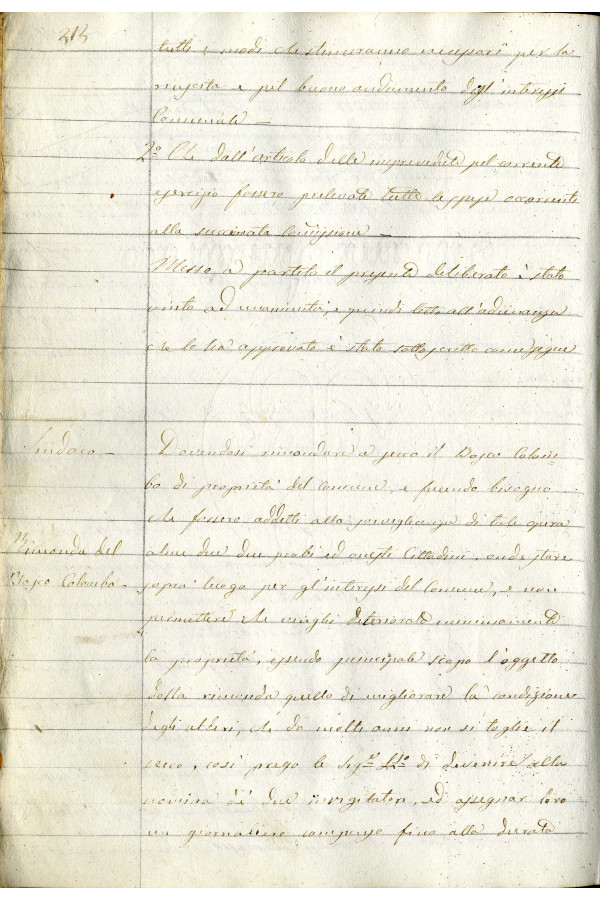 212
tutti i modi che stimeranno necessarî per la
riuscita e pel buono andamento degl'interessi
Comunali —
2° Che dall'articolo delle imprevedute pel corrente
esercizio fossero prelevate tutte le spese occorrenti
alla succennata Commissione —
Messo a partito il presente deliberato è stato
vinto ad unanimità, e quindi letto all'adunanza
che lo ha approvato è stato sottoscritto come segue
Sindaco —
Dovendosi rimondare a secco il Bosco Colom-
bo di proprietà del Comune, e facendo bisogno
che fossero addetti alla sorveglianza di tale opera
Rimonda del
almeno due probi ed onesti Cittadini, onde stare
Bosco Colombo —
sopra luogo per gl'interessi del Comune, e non
permettere che venghi deteriorato menomamente
la proprietà, essendo principale scopo l'oggetto
della rimonda quello di migliorare la condizione
degli alberi, che da molti anni non si toglie il
secco, così prego le Sig.rie LL.o di devenire alla
nomina di due invigilatori, ed assegnar loro
un giornaliero compenso fino alla durata